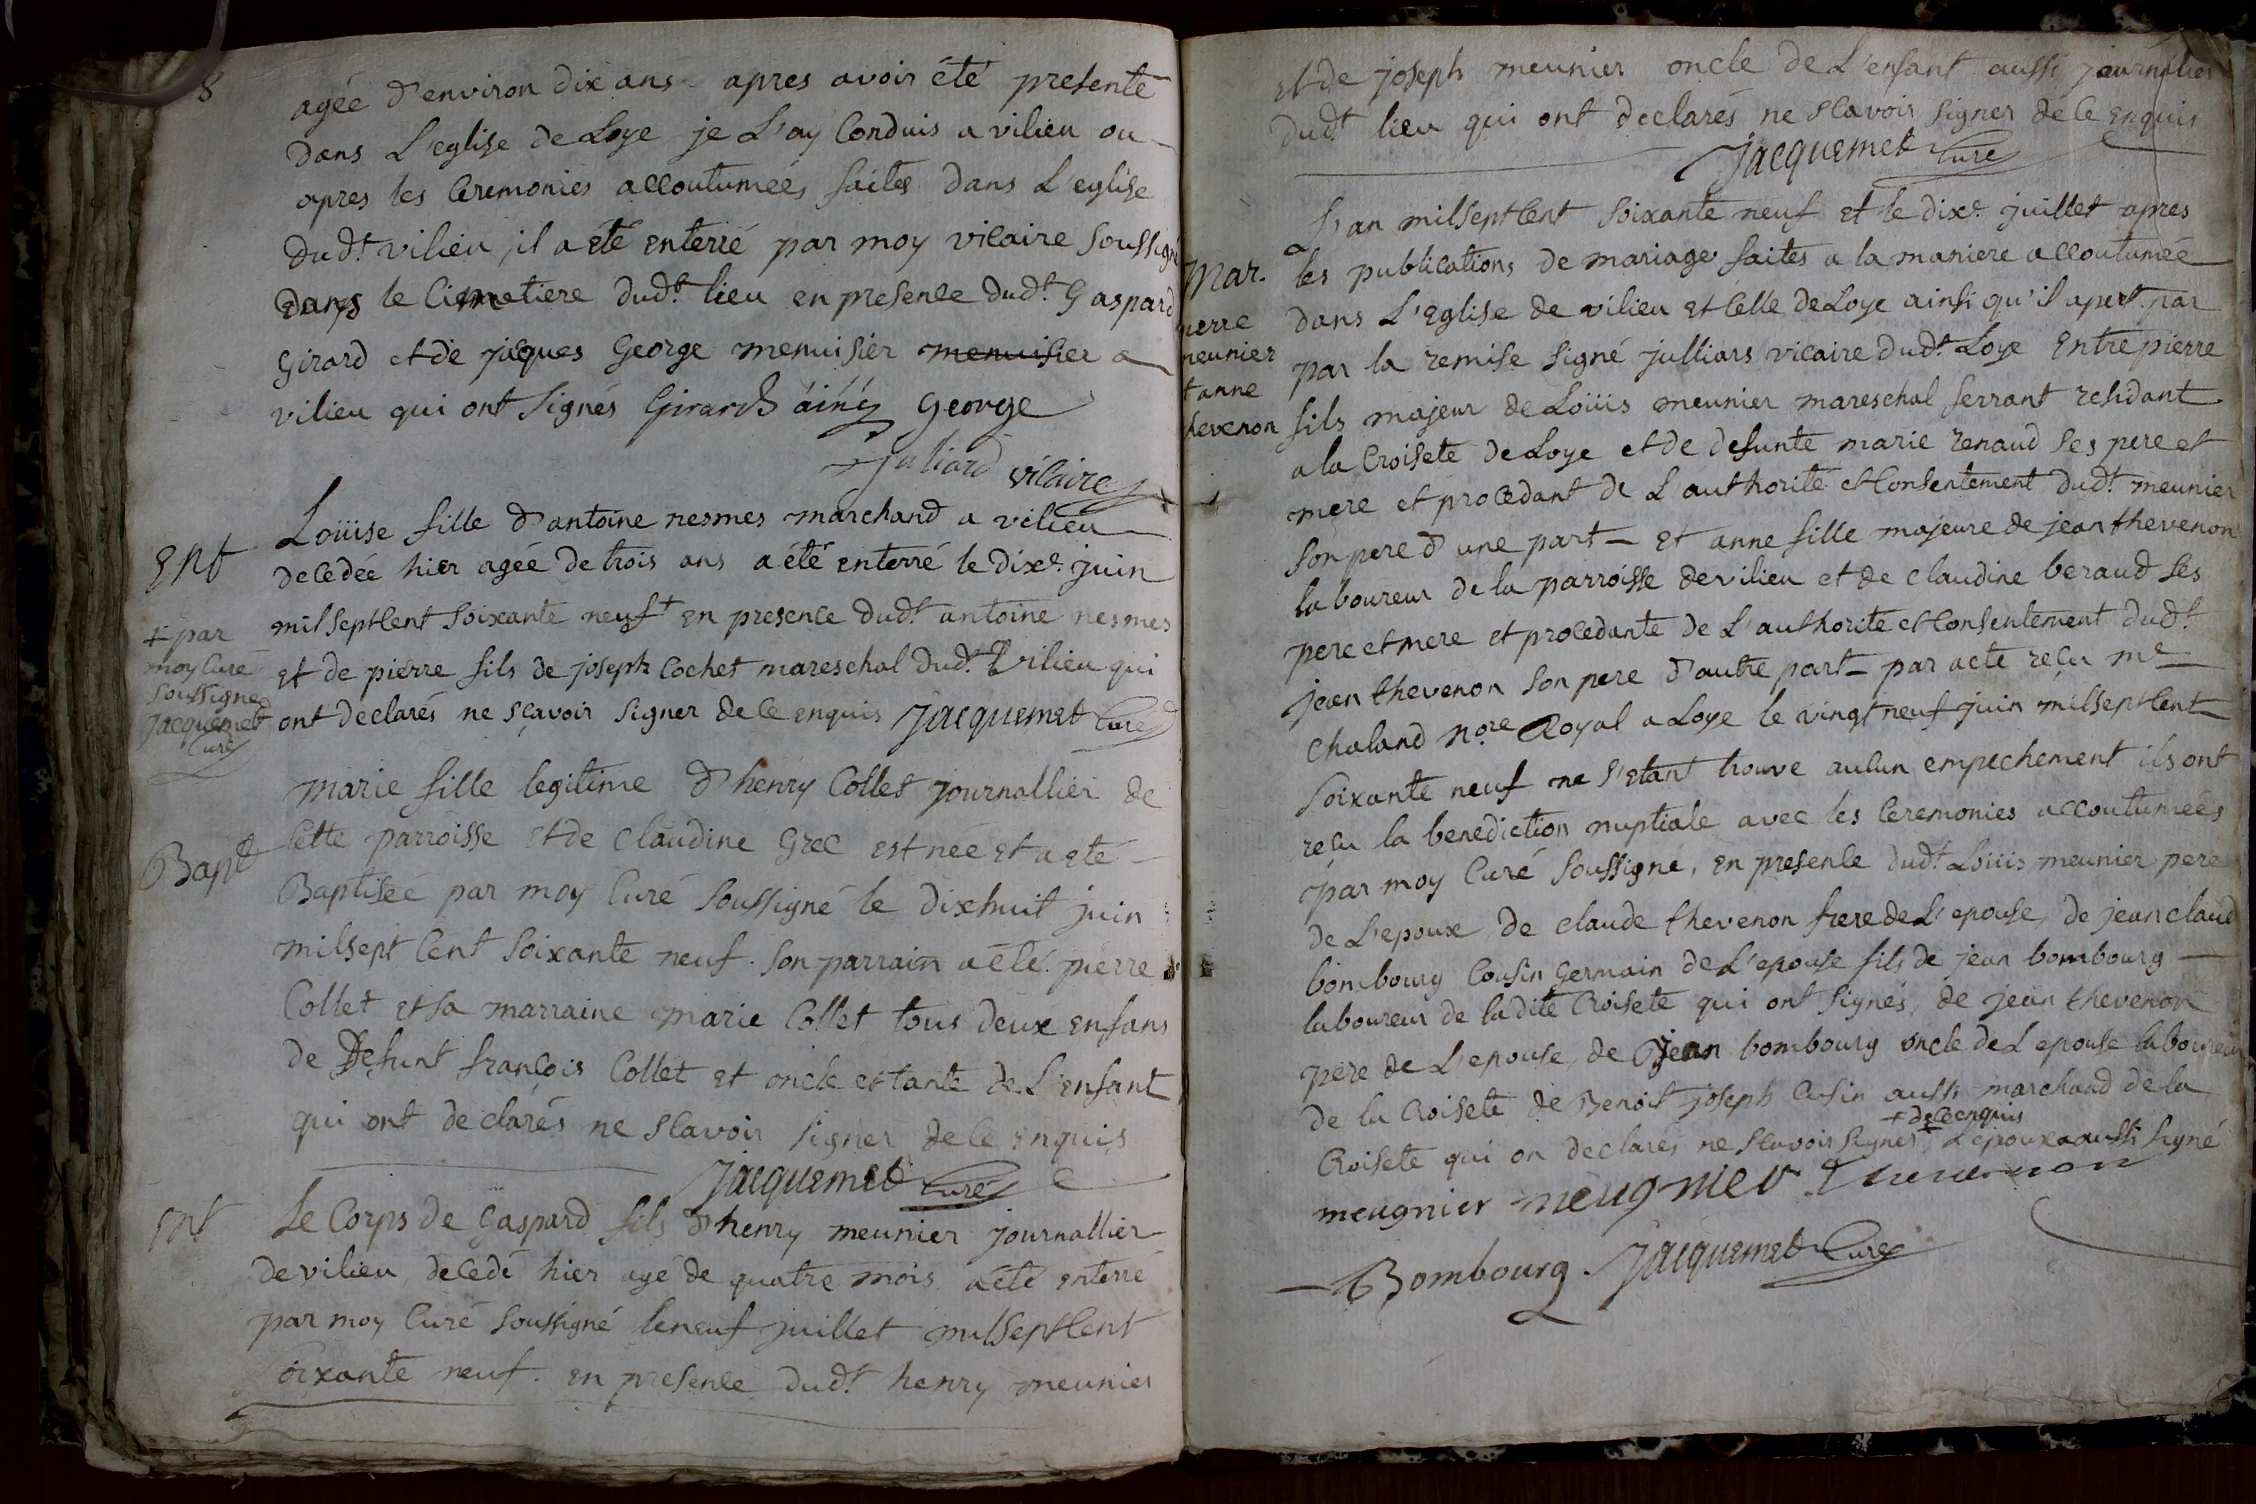 8
agée d'environ dix ans apres avoir été presenté
dans L'eglise de Loye je L'ay Conduis a vilieu ou
apres les Ceremonies accoutumées faites dans L'eglise
dud.t vilieu, il a été enterré par moy vicaire soussigné
dans le Cimetiere dud.t lieu en presence dud.t Gaspard
Girard et de jacques George menuisier menuisier a
vilieu qui ont signés Girard áiné George
Juliard vicaire
Ent
Loüise fille d'antoine nesmes marchand a vilieu
decedée hier agée de trois ans a été enterré le dix.e juin
milseptcent soixante neuf + en presence dud.t antoine nesmes
et de pierre fils de joseph Cochet mareschal dud.t vilieu qui
ont declarés ne sçavoir signer de ce enquis Jacquemet Curé
+ par
moy Curé
soussigné
Jacquemet
Curé
Bapt
Marie fille legitime d'henry Collet journallier de
cette parroisse et de Claudine Grec est née et a été
Baptisée par moy Curé soussigné le dixhuit juin
milsept cent soixante neuf. son parrain a été pierre
Collet et sa marraine marie Collet tous deux enfans
de Defunt françois Collet et oncle et tante de L'enfant
qui ont declarés ne scavoir signer de ce enquis
Jacquemet Curé
Ent
Le Corps de Gaspard fils d'henry meunier journallier
de vilieu decedé hier agé de quatre mois a été enterré
par moy Curé soussigné le neuf juillet milseptcent
soixante neuf. en presence dud.t henry meunier
et de joseph meunier oncle de L'enfant aussi journalier
dud.t lieu qui ont declarés ne scavoir signer de ce enquis
Jacquemet Curé
Mar.
pierre
meunier
et anne
thevenon
L'an milseptcent soixante neuf et le dix.e juillet apres
les publications de mariage faites a la maniere accoutumée
dans L'Eglise de vilieu et Celle de Loye ainsi qu'il apert par
par la remise signé julliars vicaire dud.t Loye Entre pierre
fils majeur de Loüis meunier mareschal ferrant residant
a la Croisete de Loye et de defunte marie renaud ses pere et
mere et procedant de L'authorité et Consentement dud.t meunier
son pere d'une part – Et anne fille majeure de jean thevenon
laboureur de la parroisse de vilieu et de claudine beraud ses
pere et mere et procedante de L'authorité et Consentement dud.t
jean thevenon son pere d'autre part – par acte reçu m.e
Chaland no.re Royal a Loye le vingt neuf juin milseptcent
soixante neuf ne s'etant trouvé aucun empechement ils ont
reçu la benediction nuptiale avec les Ceremonies accoutumées
par moy Curé soussigné, en presence dud.t Loüis meunier pere
de L'epoux, de claude thevenon frere de L'epouse, de jean claud
bombourg Cousin Germain de L'epouse fils de jean bombourg
laboureur de ladite Croisete qui ont signés, de jean thevenon
pere de L'epouse, de jean bombourg oncle de L'epouse laboureur
de la Croisete de Benoit joseph Cusin aussi marchand de la
Croisete qui on declarés ne scavoir signer + L'epoux a aussi signé
+ de ce enquis
meugnier meugnier thevenon
Bombourg Jacquemet Curé